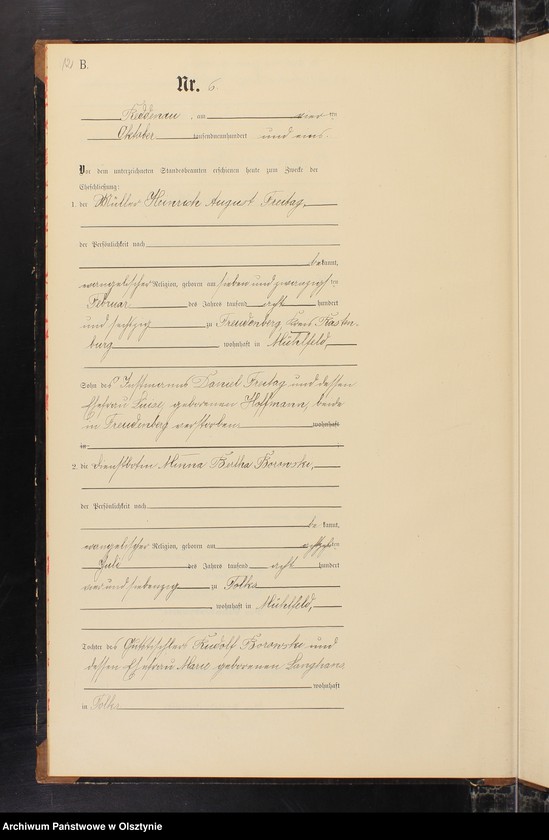 B.
Nr. 6.
Reddenau, am vier ten
Oktober tausendneunhundert und eins.
Vor dem unterzeichneten Standesbeamten erschienen heute zum Zwecke der
Eheschließung:
1. der Müller Heinrich August Freitag,
der Persönlichkeit nach
bekannt,
evangelischer Religion, geboren am sieben und zwanzigsten
Februar des Jahres tausend acht hundert
und sechzig zu Freudenberg, Kreis Rasten-
burg, wohnhaft in Mühlfeld,
Sohn des Instmanns Daniel Freitag und dessen
Ehefrau Luise geborenen Hoffmann, beide
in Freudenberg verstorben wohnhaft
in
2. die Dienstbotin Minna Bertha Borowski,
der Persönlichkeit nach
be kannt,
evangelischer Religion, geboren am
Juli des Jahres tausend acht hundert
vier und siebenzig zu Tolks
, wohnhaft in Mühlfeld,
Tochter des Rudolf Borowski und
dessen Ehefrau Marie geborenen Langhans
wohnhaft
in Tolks
Archiwum Państwowe w Olsztynie